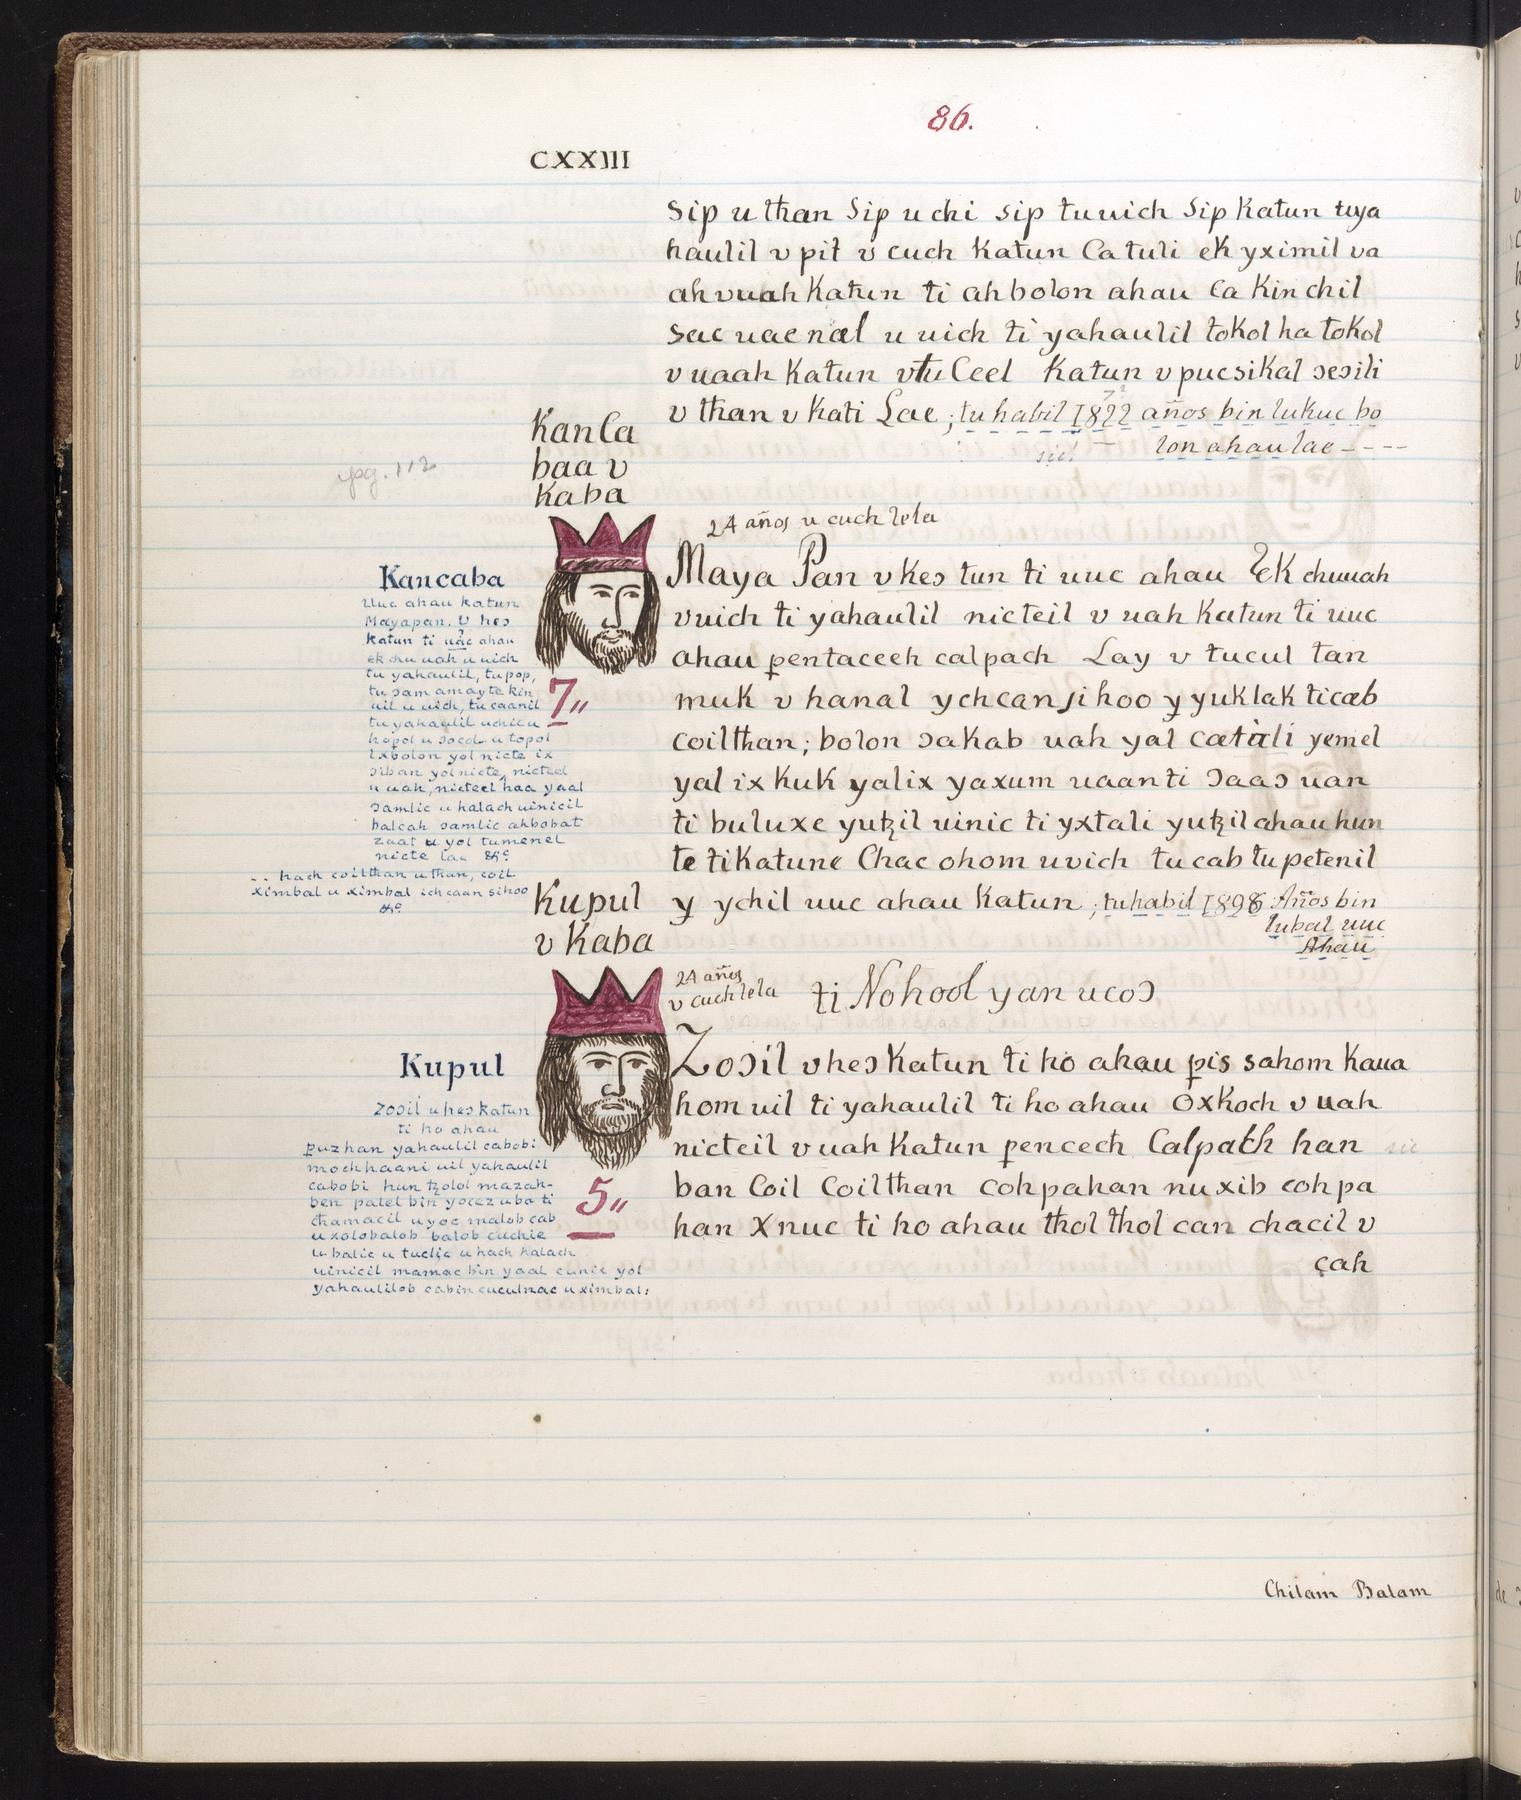 86.
CXXIII
Sip u than Sip u chi sip tuuich Sip Katun tuya
haulil v pit v cuch Katun Ca tuli ek yximil va
ah vuah Katun ti ah bolon ahau Ca Kin chil
sac uac nal u uich ti yahaulil tokol ha tokol
v uaah Katun vtu Ceel Katun v pucsikal ɔeɔili
v than v Kati Lae ; tu habil 1822 años bin lukuc bo
lon ahau lae - - - -
sic!
Kan Ca
baa v
Kaba
pg. 112
24 años u cuch lela
Maya Pan v Keɔ tun ti uuc ahau EK chuuah
vuich ti yahaulil nicteil v uah Katun ti uuc
ahau pentacech calpach Lay v tucul tan
muk v hanal ych can si hoo y yuklak ti cab
coil than ; bolon ɔakab uah yal catuli yemel
yal ix Kuk yal ix yaxum uaan ti ɔaaɔ uan
ti buluxe yutzil uinic ti yxtali yutzil ahau hun
te ti Katune Chac ohom uvich tu cab tu petenil
y ychil uuc ahau Katun ; tu habil 1898 Años bin
lubal uuc
Ahau
Kancaba
Uuc ahau katun
Mayapan. U heɔ
katun ti uac ahau
ek chu uah u uich
tu yahaulil, tu pop,
tu ɔam amayte kin
uil u uich, tu caanil
tu yahaulil uchic u
hopol u ɔocol u topol
ix bolon yol nicte ix
ɔiban yol nicte, nicteel
u uah, nicteel haa yaal
ɔamlic u halach uinicil
balcah ɔamlic ahbobat
zaat u yol tumenel
nicte lae &c
-- hach coilthan u than, coil
ximbal u ximbal ich caan sihoo
&c
7"
Kupul
v Kaba
24 años
v cuch lela
ti Nohool yan u coɔ
Zoɔil v heɔ Katun ti ho ahau pis sahom Kaua
hom uil ti yahaulil ti ho ahau Ox Koch v uah
nicteil v uah Katun pencech Calpach han
sic
ban Coil Coil than cohpahan nuxib cohpa
han Xnuc ti ho ahau thol thol can chacil v
çah
Kupul
Zoɔil u heɔ katun
ti ho ahau
puzhan yahaulil cabobi
moch haani uil yahaulil
cabobi hun tzolol mazah-
ben patel bin yocez uba ti
chamacil u yoc malob cab
u xolobalob balob cuchie
u balic u tuclic u hach halach
uinicil mamac bin yaal cunic yol
yahaulilob cabin cuculnac u ximbal:
5"
Chilam Balam